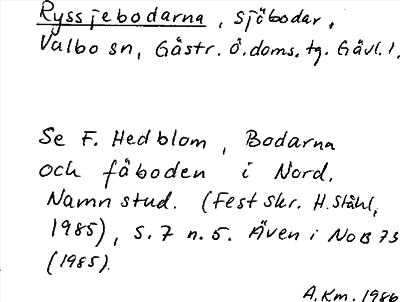 Ryssjebodarna, sjöbodar,
Valbo sn, Gästr. Ö. doms. tg. Gävl. l.
Se F. Hedblom, Bodarna
och fäboden i Nord.
Namnstud. (Festskr. H. Ståhl,
1985), s. 7 n. 5. Även i NoB 73
(1985).
A. Km. 1986